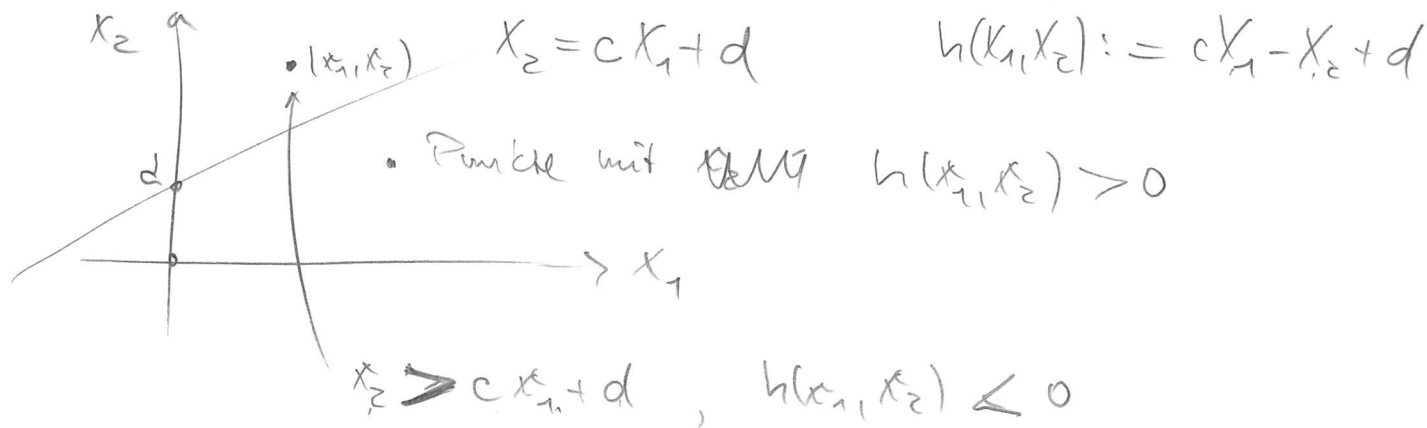 x₂
(x₁, x₂) x₂ = cx₁ + d h(x₁, x₂) := cx₁ - x₂ + d
d
• Punkte mit h(x₁, x₂) > 0
x₁
x₂ > cx₁ + d , h(x₁, x₂) < 0